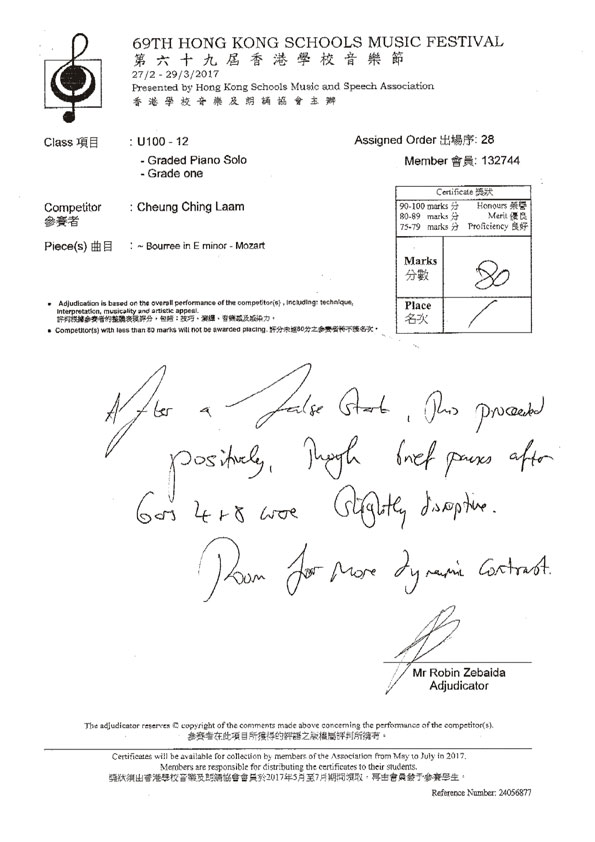 69TH HONG KONG SCHOOLS MUSIC FESTIVAL
第六十九屆香港學校音樂節
27/2 - 29/3/2017
Presented by Hong Kong Schools Music and Speech Association
香港學校音樂及朗誦協會主辦
Class 項目 : U100 - 12
Assigned Order 出場序: 28
- Graded Piano Solo
- Grade one
Member 會員: 132744
Certificate 獎狀
90-100 marks 分 Honours 榮譽
80-89 marks 分 Merit 優良
75-79 marks 分 Proficiency 良好
Competitor : Cheung Ching Laam
參賽者
Piece(s) 曲目 : ~ Bourree in E minor - Mozart
Marks 80
分數
Place /
名次
• Adjudication is based on the overall performance of the competitor(s) , including: technique,
interpretation, musicality and artistic appeal.
評判根據參賽者的整體表現評分，包括：技巧、演繹、音樂感及感染力。
• Competitor(s) with less than 80 marks will not be awarded placing. 評分未達80分之參賽者將不獲名次。
After a false start, this proceeded
positively, though brief pauses after
bars 4 + 8 were slightly disruptive.
Room for more dynamic contrast.
Mr Robin Zebaida
Adjudicator
The adjudicator reserves © copyright of the comments made above concerning the performance of the competitor(s).
參賽者在此項目所獲得的評語之版權屬評判所擁有。
Certificates will be available for collection by members of the Association from May to July in 2017.
Members are responsible for distributing the certificates to their students.
獎狀須由香港學校音樂及朗誦協會會員於2017年5月至7月期間領取，再由會員發予參賽學生。
Reference Number: 24056877